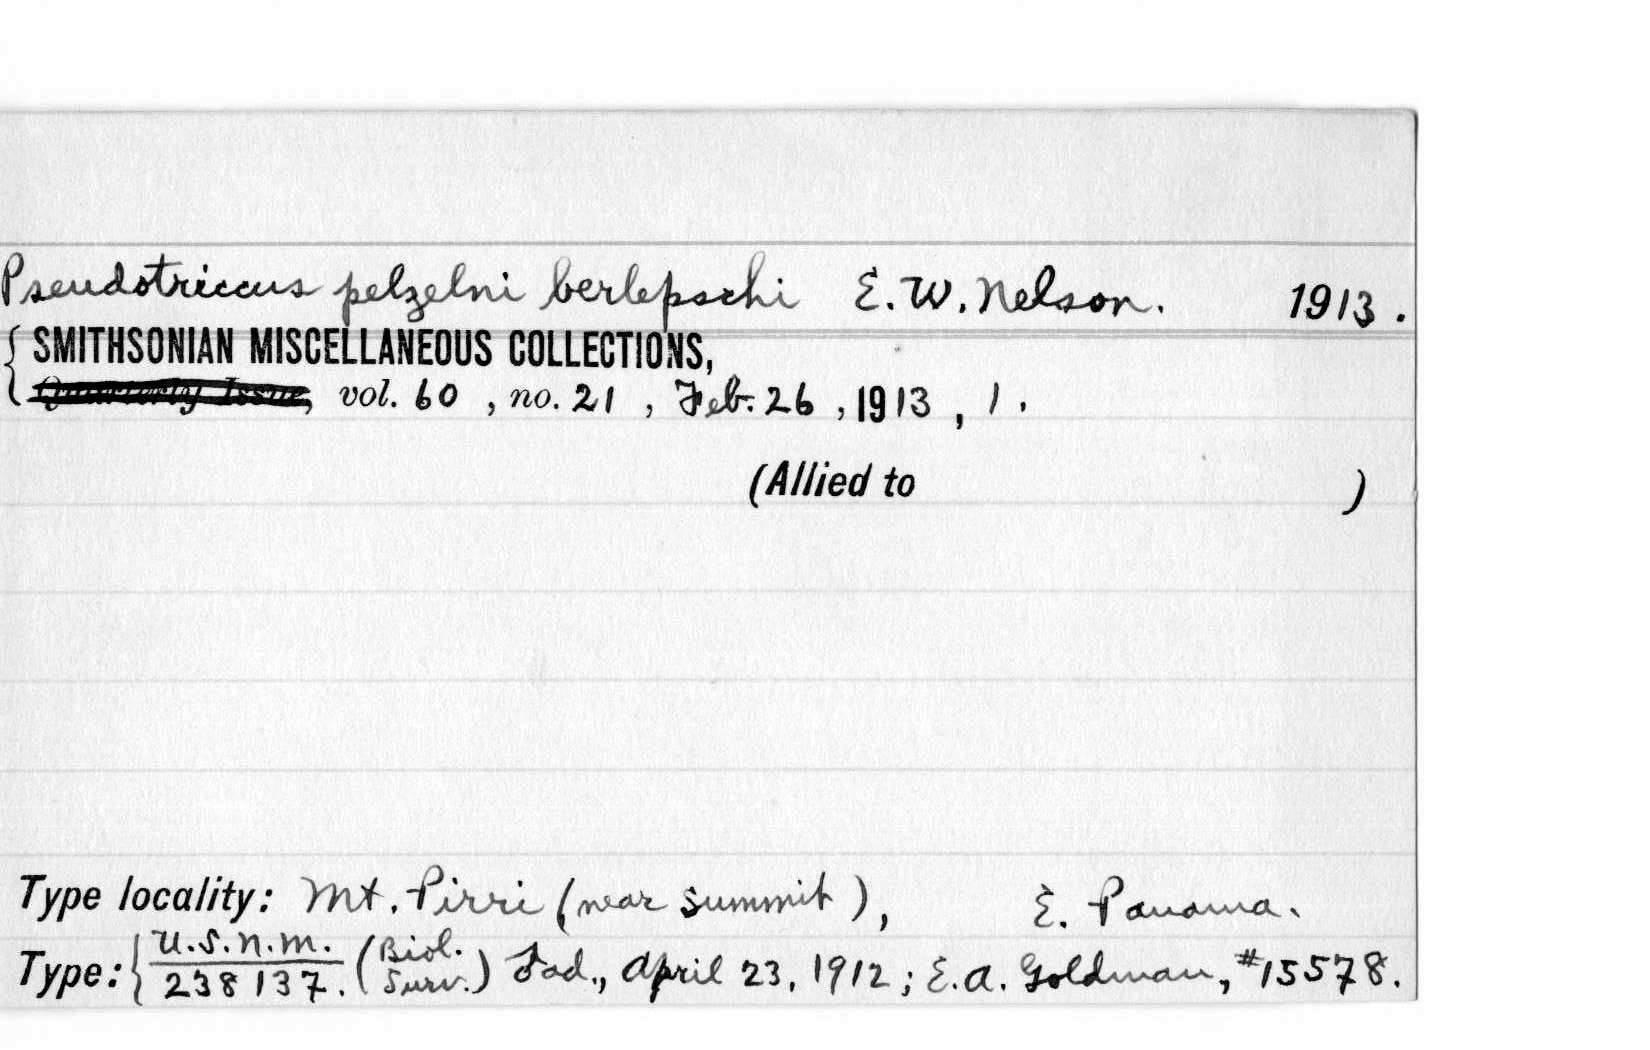 Pseudotriccus pelzelni berlepschi E. W. Nelson. 1913.
{ SMITHSONIAN MISCELLANEOUS COLLECTIONS,
Quarterly Issue, vol. 60, no. 21, Feb. 26, 1913, 1.
(Allied to )
Type locality: Mt. Pirri (near summit), E. Panama.
Type: { U.S.N.M. 238137. (Biol. Surv.) ad., April 23, 1912; E. A. Goldman, #15578.